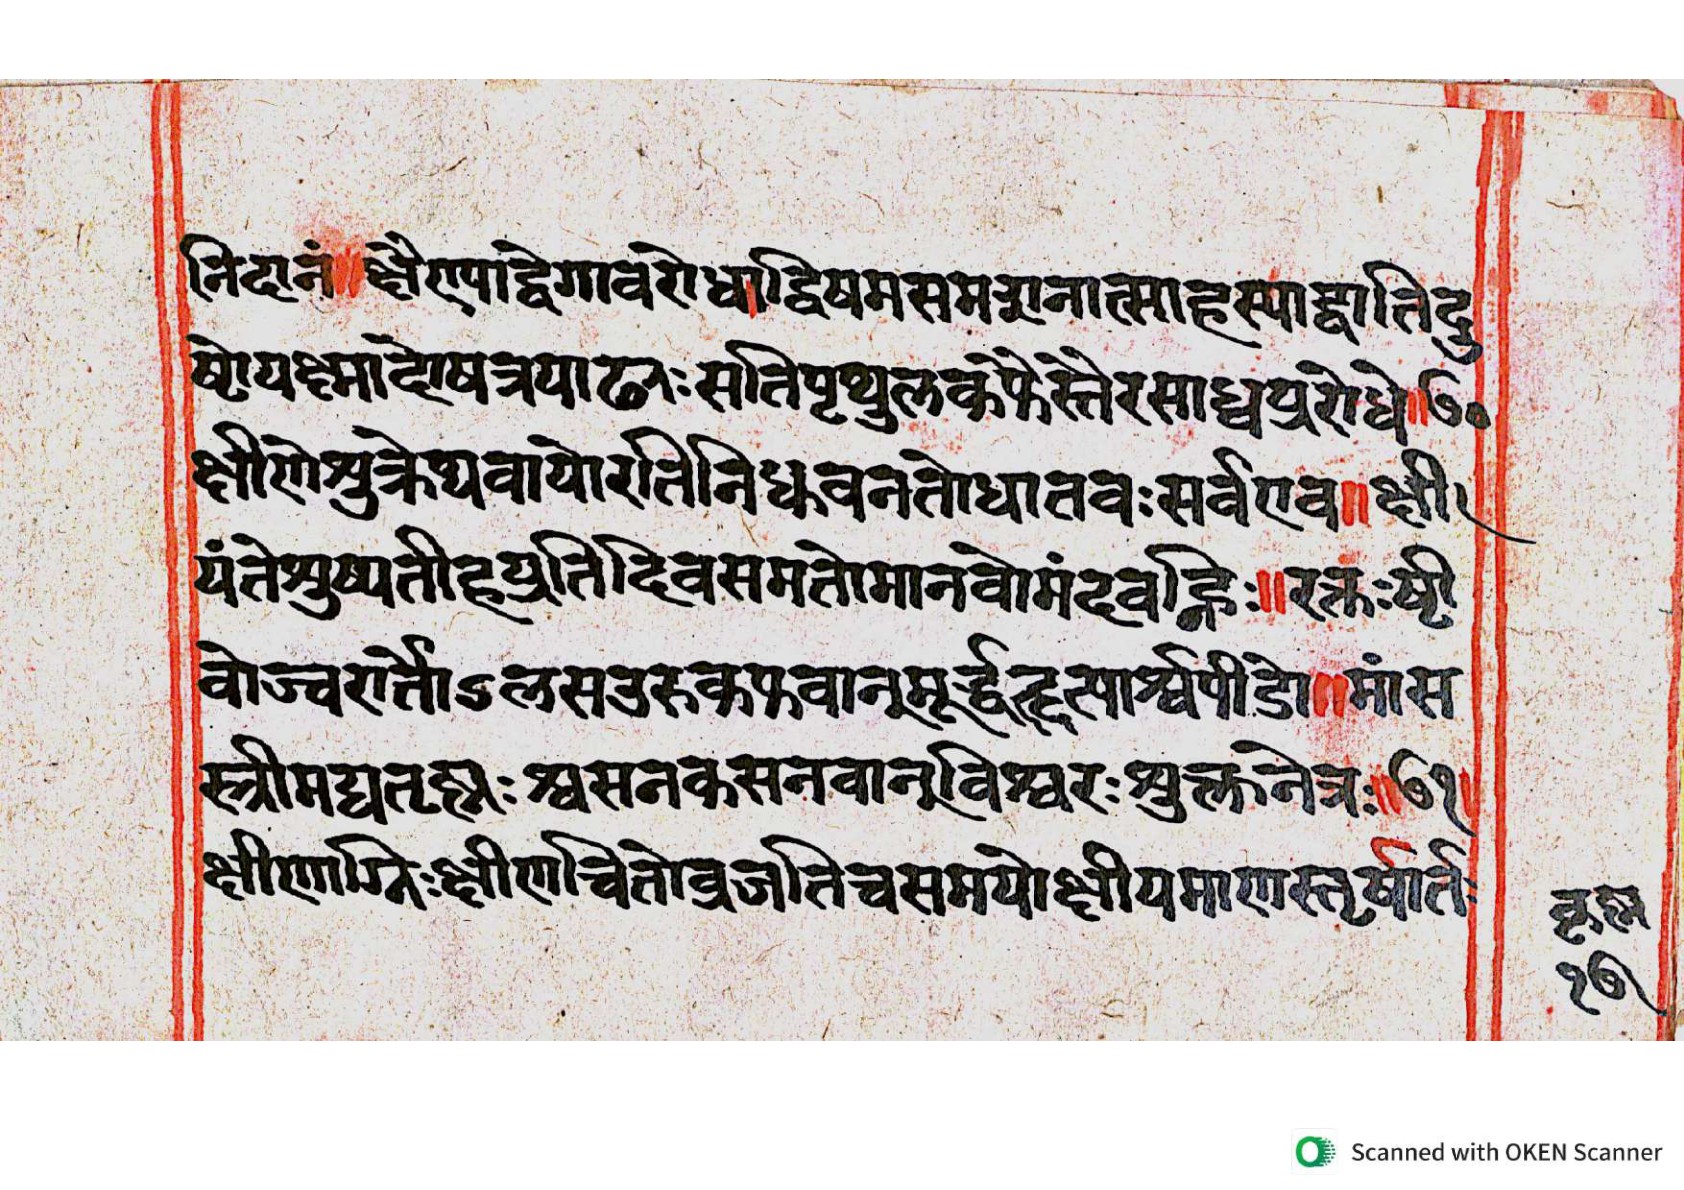 निदानं॥क्षैण्पाद्वेगावरोधाद्विषमसमशनात्साहस्याद्वातिदु
ष्टोयक्ष्मादोषत्रयाढ्यःसतिपृथुलकफैस्तैरसाध्वप्ररोधे॥७०
क्षीणेशुक्रेव्यवायोरतिनिधुवनतोधातवःसर्वएव॥क्षी
यंतेशुष्यतीहप्रतिदिवसमतोमानवोमंदवह्निः॥रक्तःष्ठी
वोज्वरार्त्तोऽलसउरुकफवान्मूर्द्धहृत्पार्श्वपीडो॥मांस
स्त्रीमद्यतृह्मः श्वसनकसनवान्विश्वरःशुक्लनेत्रः॥७१॥
क्षीणाग्निःक्षीणचित्तोव्रजतिचसमयोक्षीयमाणस्तृर्षार्तः
१७
Scanned with OKEN Scanner